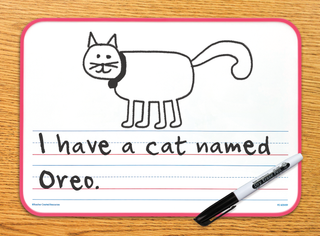 I have a cat named
Oreo.